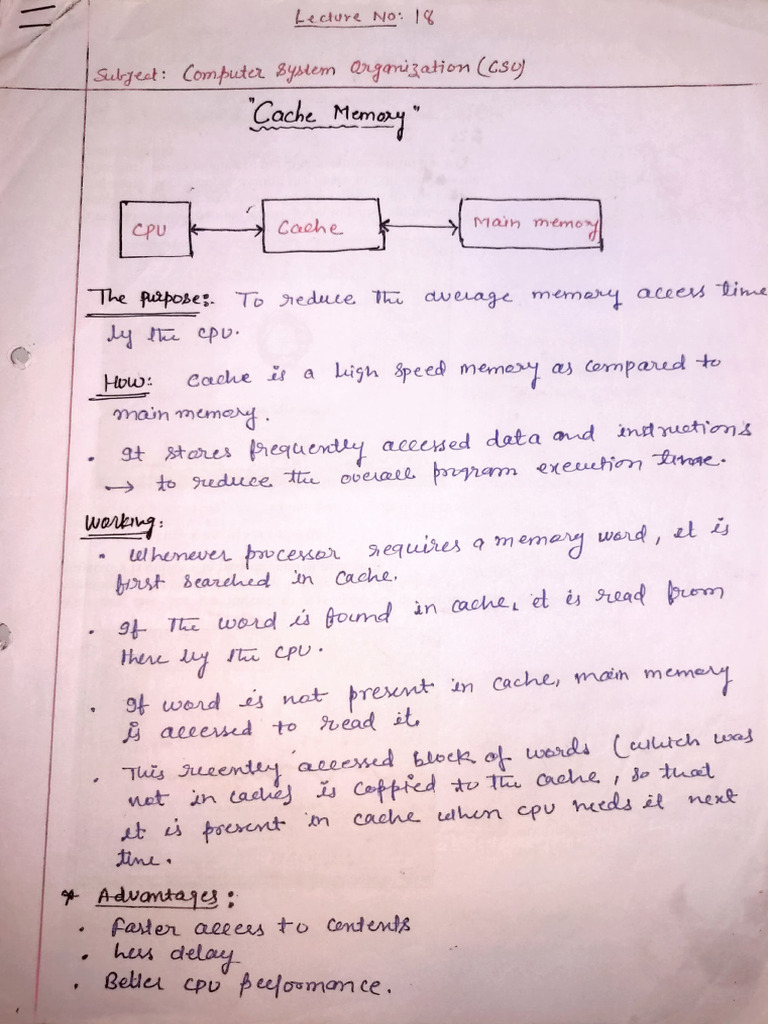 Lecture No: 18
Subject: Computer System Organization (CSO)
"Cache Memory"
CPU Cache Main memory
The purpose:. To reduce the average memory access time
by the CPU.
How: Cache is a high speed memory as compared to
main memory.
. It stores frequently accessed data and instructions
→ to reduce the overall program execution time.
Working:
• Whenever processor requires a memory word, it is
first searched in cache.
• If the word is found in cache, it is read from
there by the CPU.
• If word is not present in cache, main memory
is accessed to read it.
• This recently accessed block of words (which was
not in cache) is coppied to the cache, so that
it is present in cache when CPU needs it next
time.
* Advantages:
• Faster access to contents
• Less delay
• Better CPU performance.